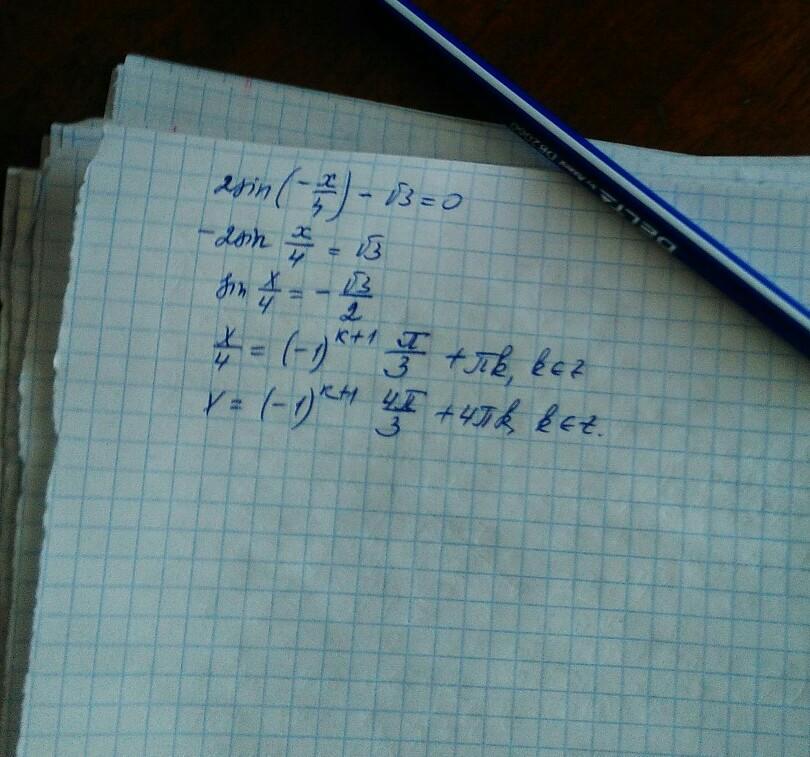 2sin(-x/4) - √3 = 0
-2sin x/4 = √3
sin x/4 = - √3/2
x/4 = (-1)^{k+1} π/3 + πk, k∈z
x = (-1)^{k+1} 4π/3 + 4πk, k∈z.
DELTA